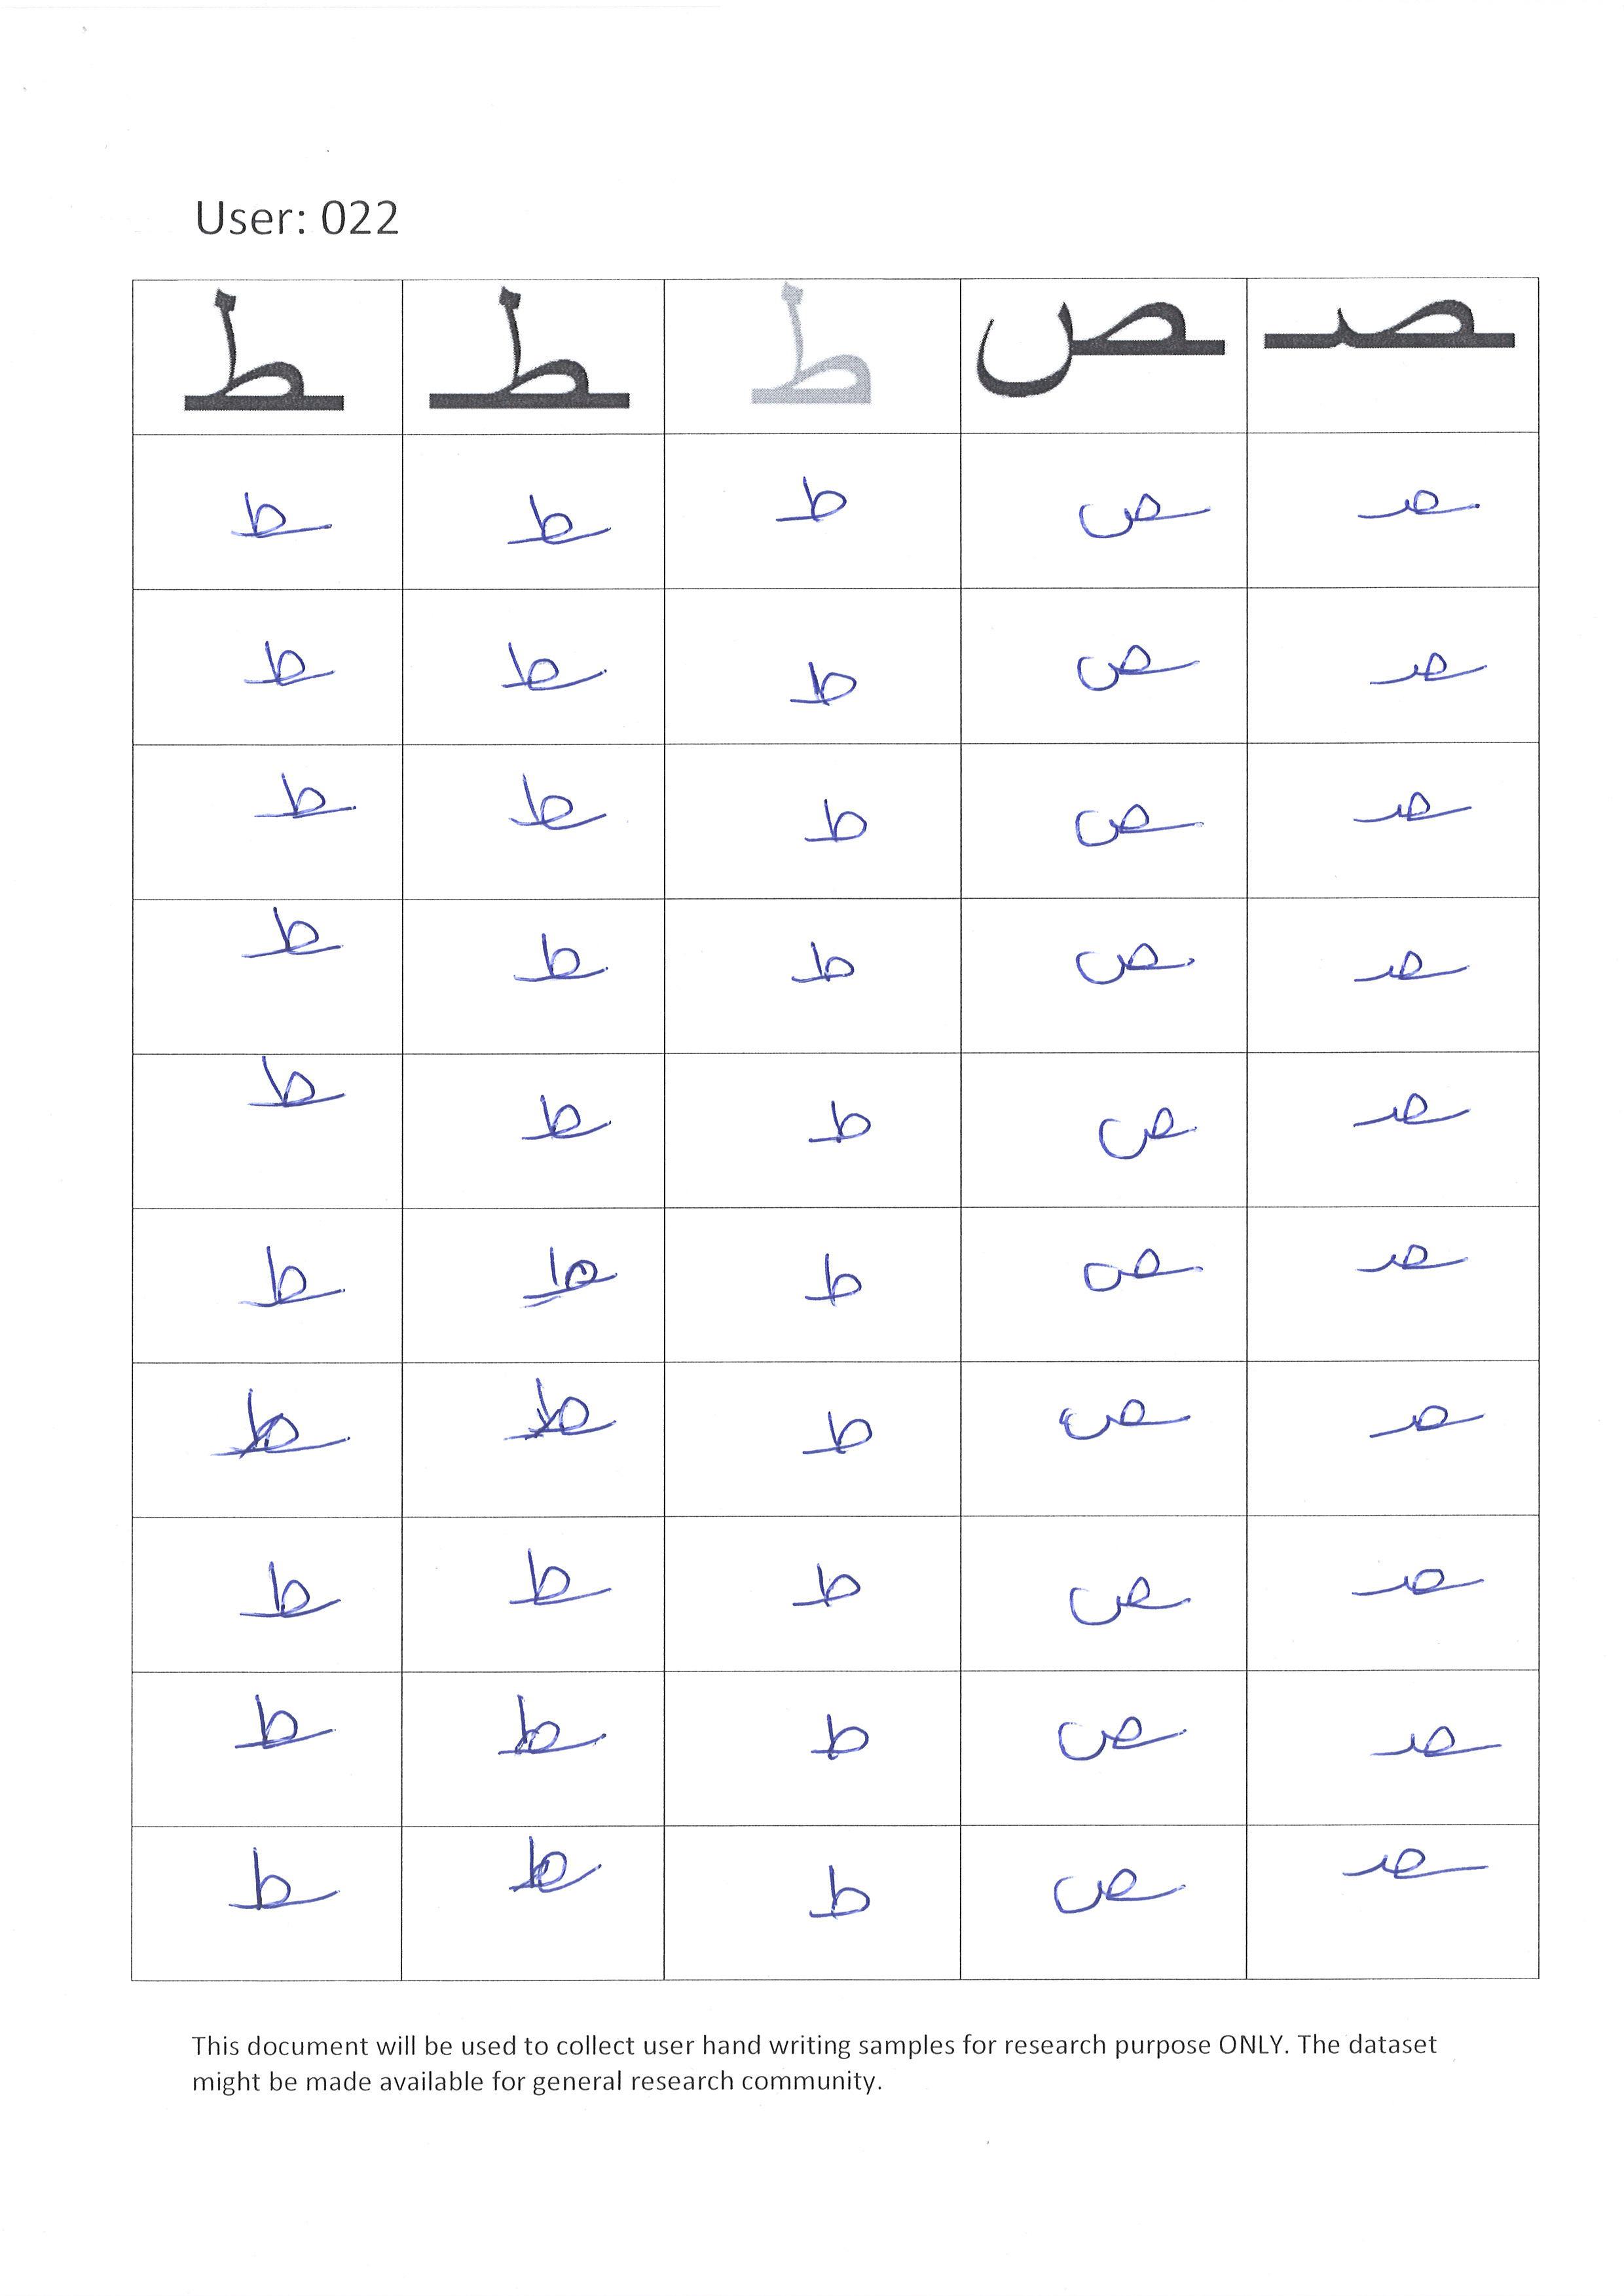 User: 022
ـط ـطـ ط ـص ـصـ
ـط ـطـ ط ـص ـصـ
ـط ـطـ ط ـص ـصـ
ـط ـطـ ط ـص ـصـ
ـط ـطـ ط ـص ـصـ
ـط ـطـ ط ـص ـصـ
ـط ـطـ ط ـص ـصـ
ـط ـطـ ط ـص ـصـ
ـط ـطـ ط ـص ـصـ
ـط ـطـ ط ـص ـصـ
ـط ـطـ ط ـص ـصـ
This document will be used to collect user hand writing samples for research purpose ONLY. The dataset
might be made available for general research community.